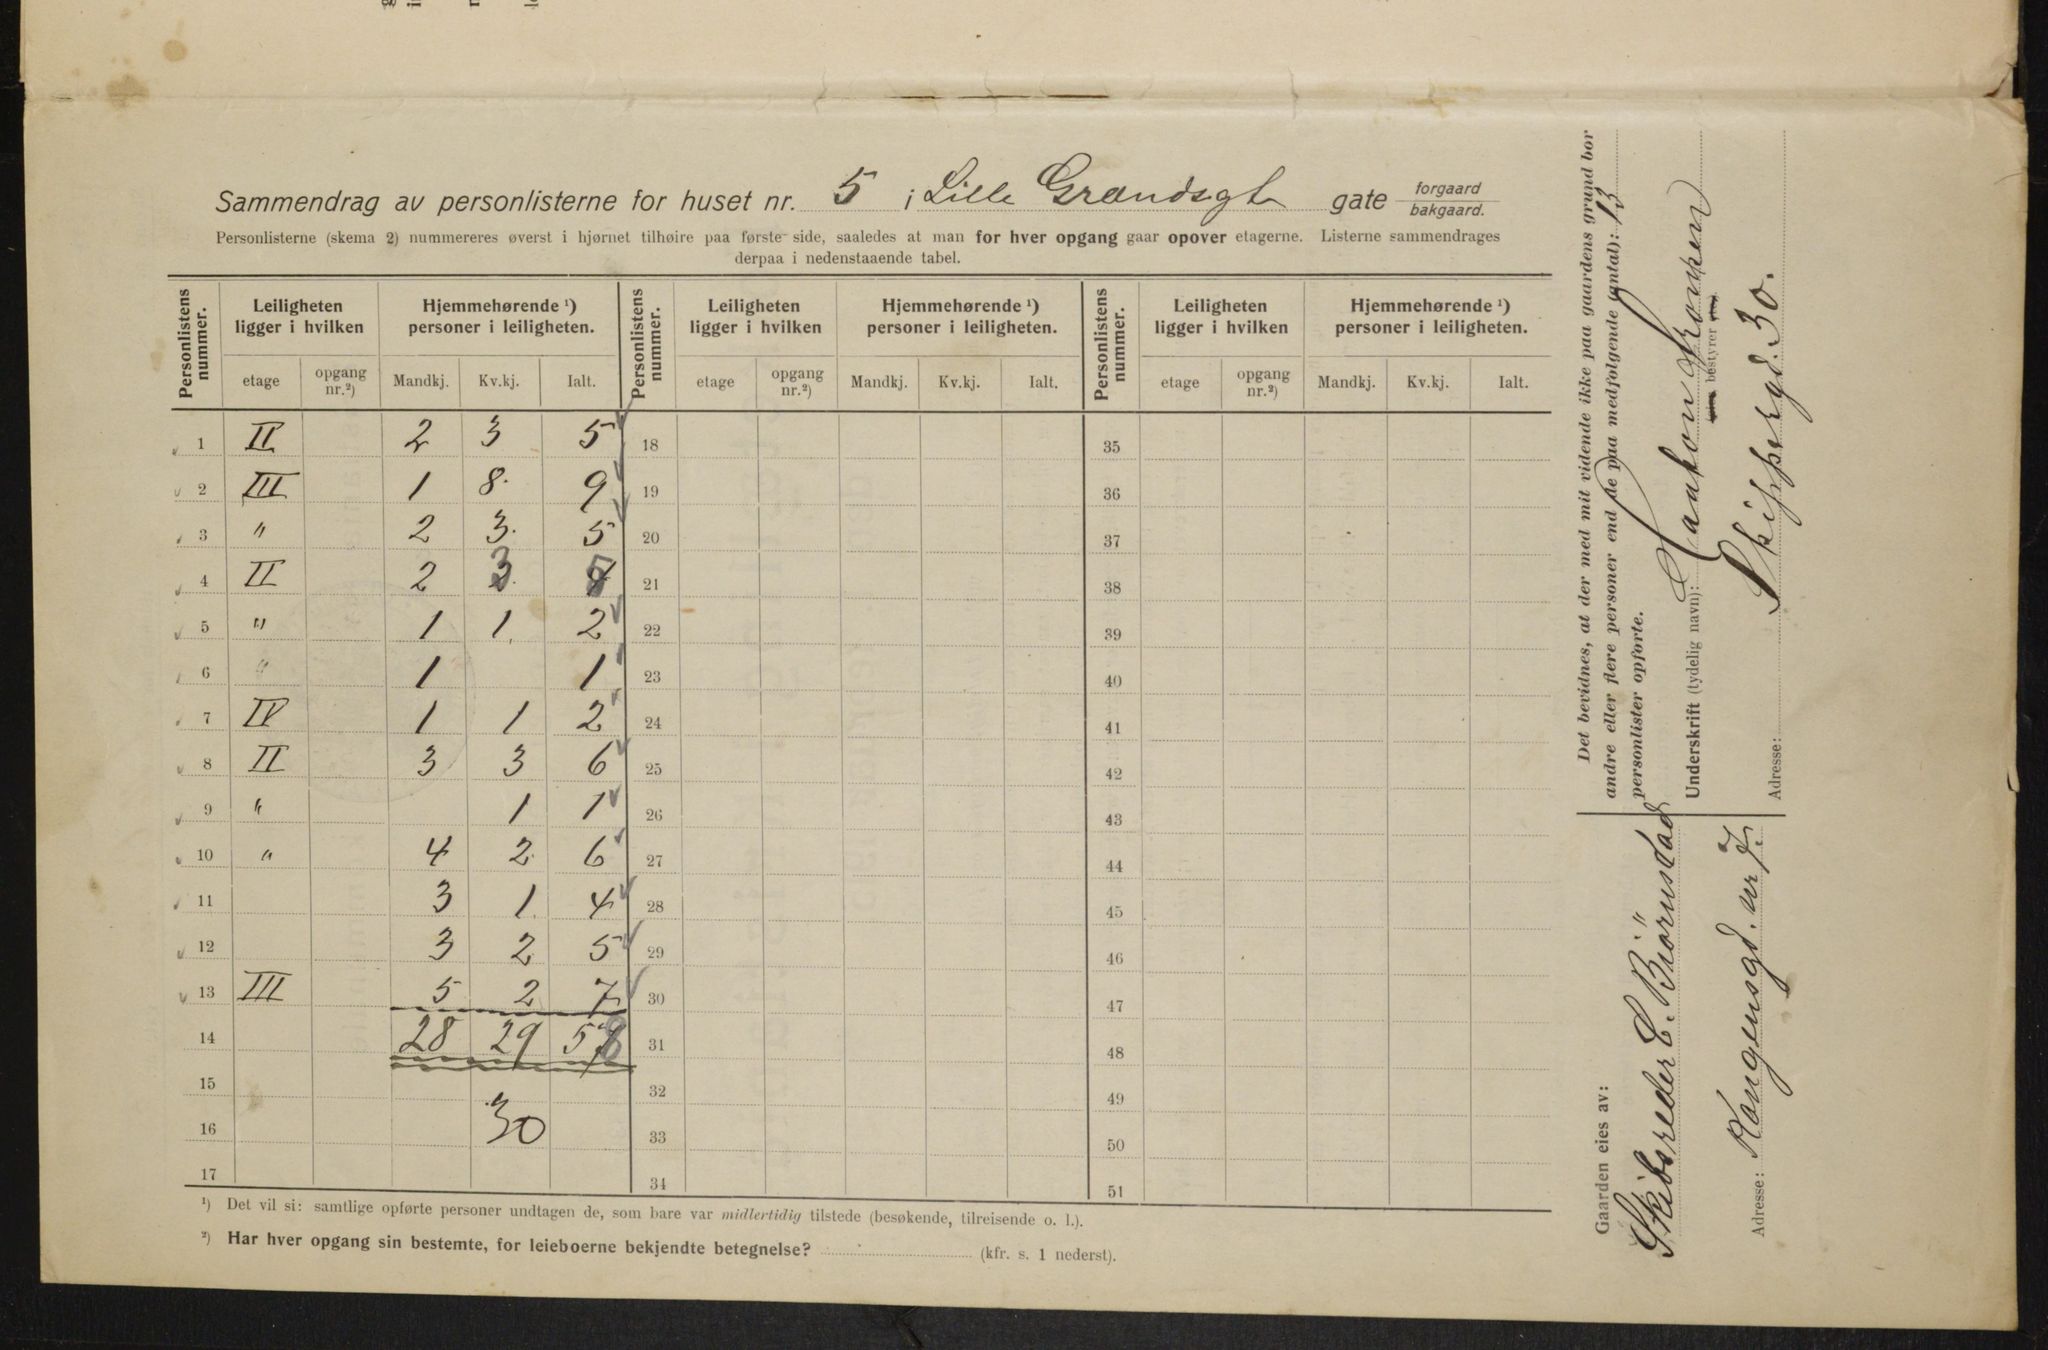 Sammendrag av personlisterne for huset nr. 5 i Lille Grændsgt gate forgaard bakgaard.
Personlisterne (skema 2) nummereres øverst i hjørnet tilhøire paa første side, saaledes at man for hver opgang gaar opover etagerne. Listerne sammendrages
derpaa i nedenstaaende tabel.
Personlistens nummer. Leiligheten ligger i hvilken Hjemmehørende ¹) personer i leiligheten. Personlistens nummer. Leiligheten ligger i hvilken Hjemmehørende ¹) personer i leiligheten. Personlistens nummer. Leiligheten ligger i hvilken Hjemmehørende ¹) personer i leiligheten.
etage opgang nr.²) Mandkj. Kv.kj. Ialt. etage opgang nr.²) Mandkj. Kv.kj. Ialt. etage opgang nr.²) Mandkj. Kv.kj. Ialt.
1 II 2 3 5 18 35
2 III 1 8 9 19 36
3 " 2 3 5 20 37
4 II 2 3 5 21 38
5 " 1 1 2 22 39
6 " 1 1 23 40
7 IV 1 1 2 24 41
8 II 3 3 6 25 42
9 " 1 1 26 43
10 " 4 2 6 27 44
11 3 1 4 28 45
12 3 2 5 29 46
13 III 5 2 7 30 47
14 28 29 58 31 48
15 32 49
16 30 33 50
17 34 51
¹) Det vil si: samtlige opførte personer undtagen de, som bare var midlertidig tilstede (besøkende, tilreisende o. l.).
²) Har hver opgang sin bestemte, for leieboerne bekjendte betegnelse? (kfr. s. 1 nederst).
Det bevidnes, at der med mit vidende ikke paa gaardens grund bor
andre eller flere personer end de paa medfølgende (antal): 13
personlister opførte.
Underskrift (tydelig navn): Haakon
bestyrer
Adresse: Skippergd. 30.
Gaarden eies av:
Skibsreder E. Biörnstad
Adresse: Kongensgd. nr 7.